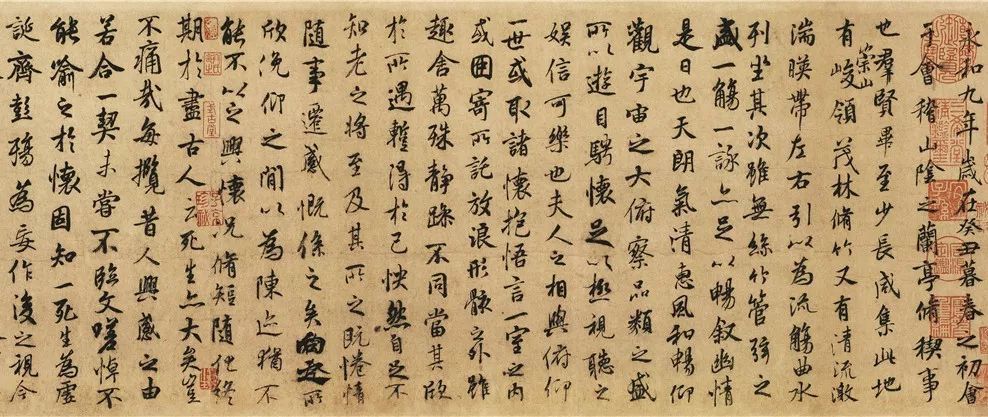 永和九年歲在癸丑暮春之初會
于會稽山陰之蘭亭脩稧事
也羣賢畢至少長咸集此地
有崇山峻領茂林脩竹又有清流激
湍暎帶左右引以為流觴曲水
列坐其次雖無絲竹管弦之
盛一觴一詠亦足以暢敘幽情
是日也天朗氣清惠風和暢仰
觀宇宙之大俯察品類之盛
所以遊目騁懷足以極視聽之
娛信可樂也夫人之相與俯仰
一世或取諸懷抱悟言一室之內
或因寄所託放浪形骸之外雖
趣舍萬殊靜躁不同當其欣
於所遇蹔得於己怏然自足不
知老之將至及其所之既惓情
隨事遷感慨係之矣向之所
欣俛仰之閒以為陳迹猶不
能不以之興懷況脩短隨化終
期於盡古人云死生亦大矣豈
不痛哉每攬昔人興感之由
若合一契未嘗不臨文嗟悼不
能喻之於懷固知一死生為虛
誕齊彭殤為妄作後之視今